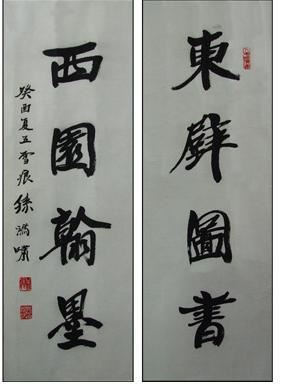 東壁圖書
西園翰墨
癸酉夏五雪痕